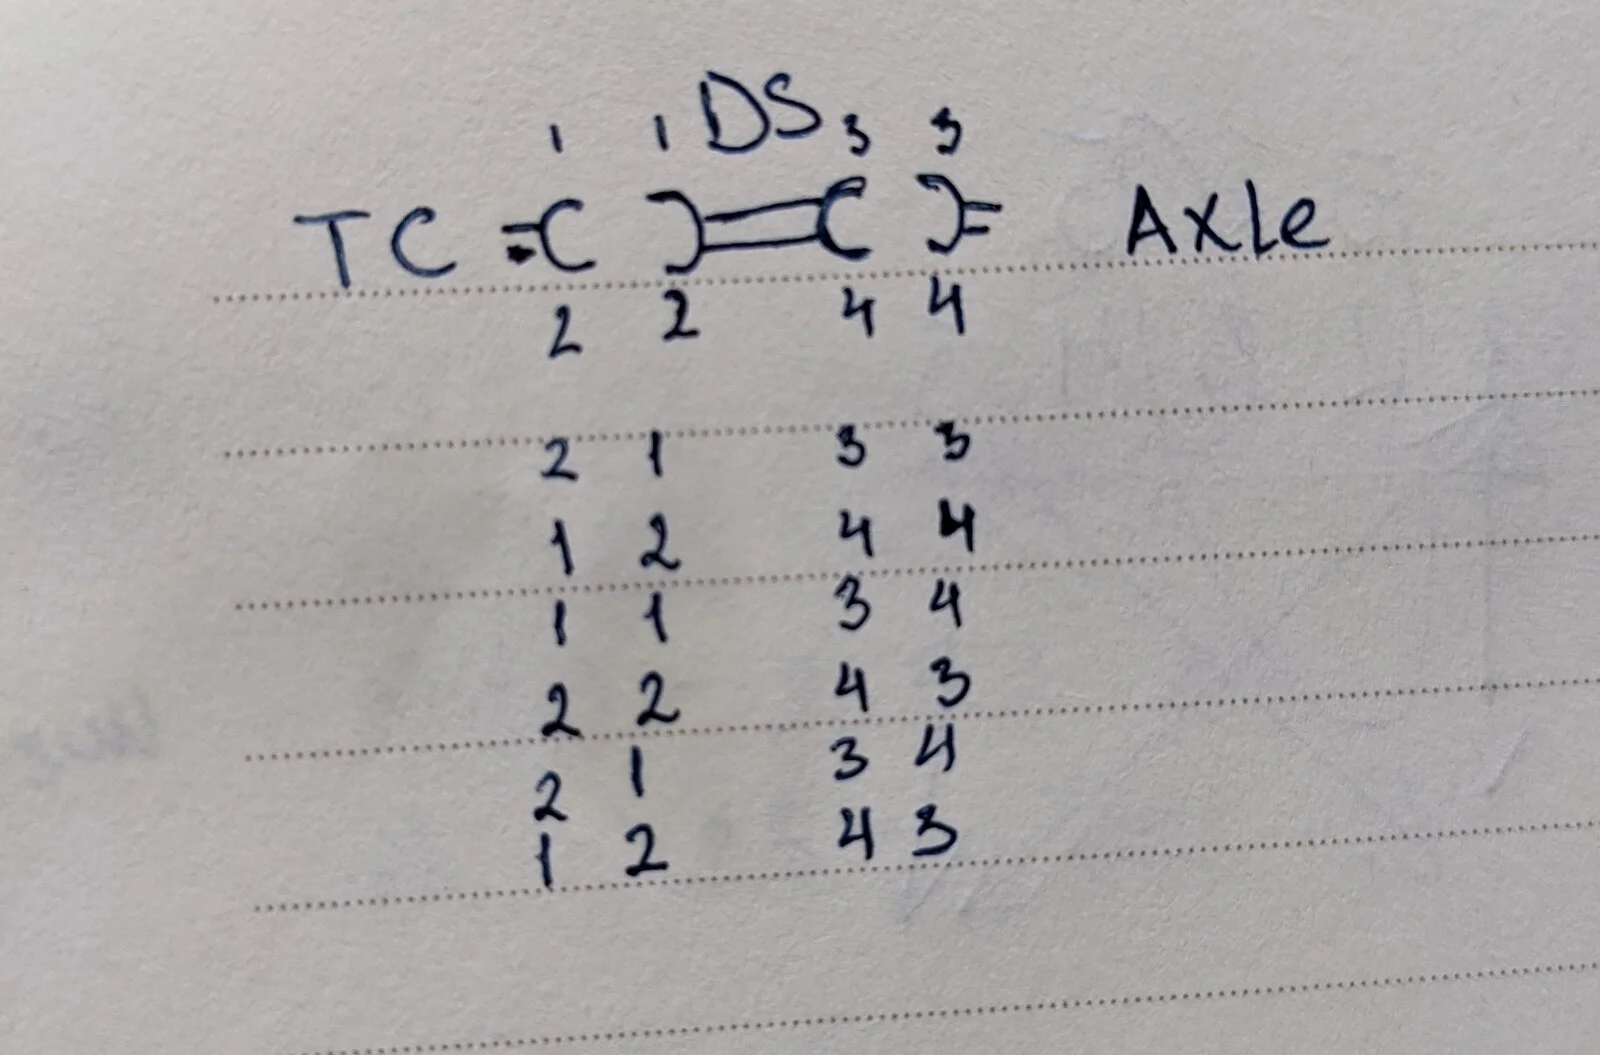 1 1 DS 3 3
TC =C Ɔ=C Ɔ= Axle
2 2 4 4
2 1 3 3
1 2 4 4
1 1 3 4
2 2 4 3
2 1 3 4
1 2 4 3